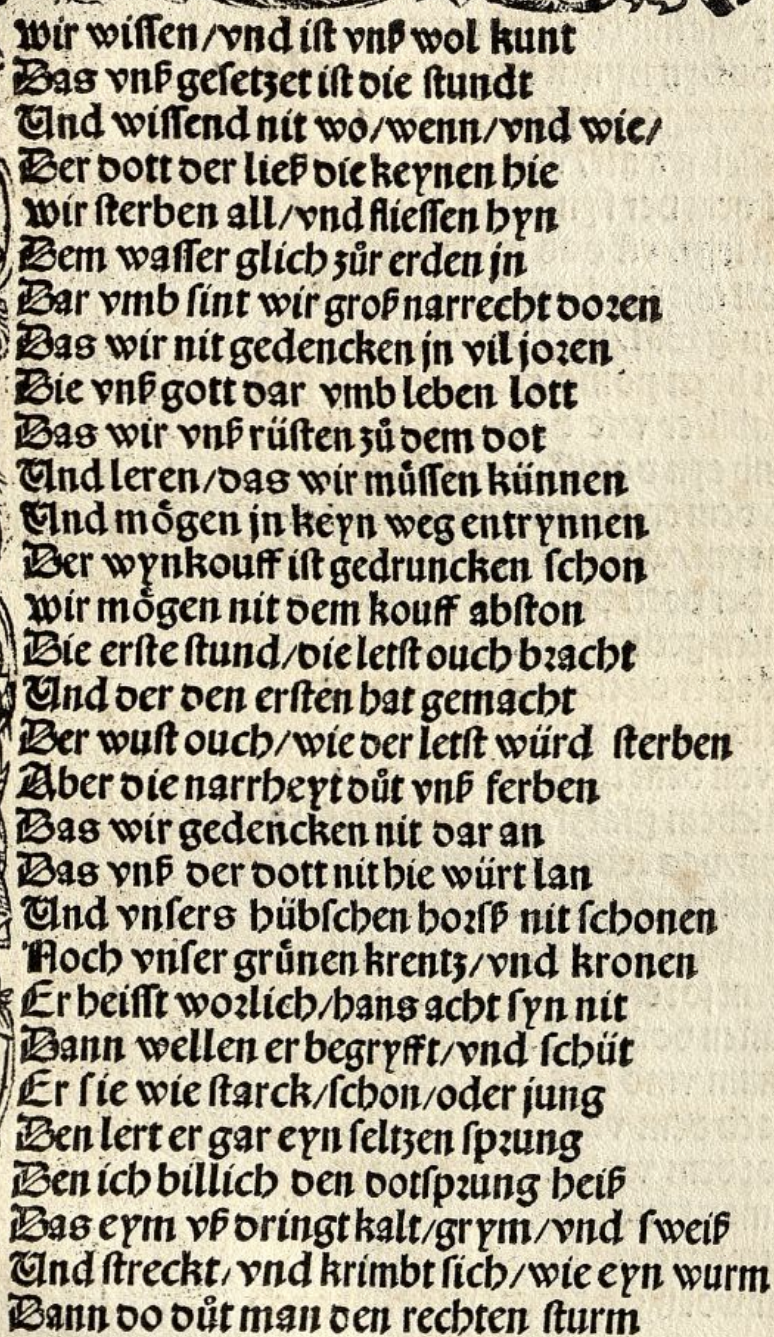 Wir wissen/vnd ist vnß wol kunt
Das vnß gesetzet ist die stundt
Vnd wissend nit wo/wenn/vnd wie/
Der dott der ließ die keynen hie
Wir sterben all/vnd fliessen hyn
Dem wasser glich zůr erden jn
Dar vmb sint wir groß narrecht doren
Das wir nit gedencken jn vil joren
Die vnß gott dar vmb leben lott
Das wir vnß rüsten zů dem dot
Vnd leren/das wir müssen künnen
Vnd mögen jn keyn weg entrynnen
Der wynkouff ist gedruncken schon
Wir mögen nit dem kouff abston
Die erste stund/die letst ouch bracht
Vnd der den ersten hat gemacht
Der wust ouch/wie der letst würd sterben
Aber die narrheyt důt vnß ferben
Das wir gedencken nit dar an
Das vnß der dott nit hie würt lan
Vnd vnsers hübschen horß nit schonen
Noch vnser grůnen krentz/vnd kronen
Er heisst worlich/hans acht syn nit
Dann wellen er begryfft/vnd schüt
Er sie wie starck/schon/oder jung
Den lert er gar eyn seltzen sprung
Den ich billich den dotsprung heiß
Das eym vß dringt kalt/grym/vnd sweiß
Vnd streckt/vnd krimbt sich/wie eyn wurm
Dann do důt man den rechten sturm